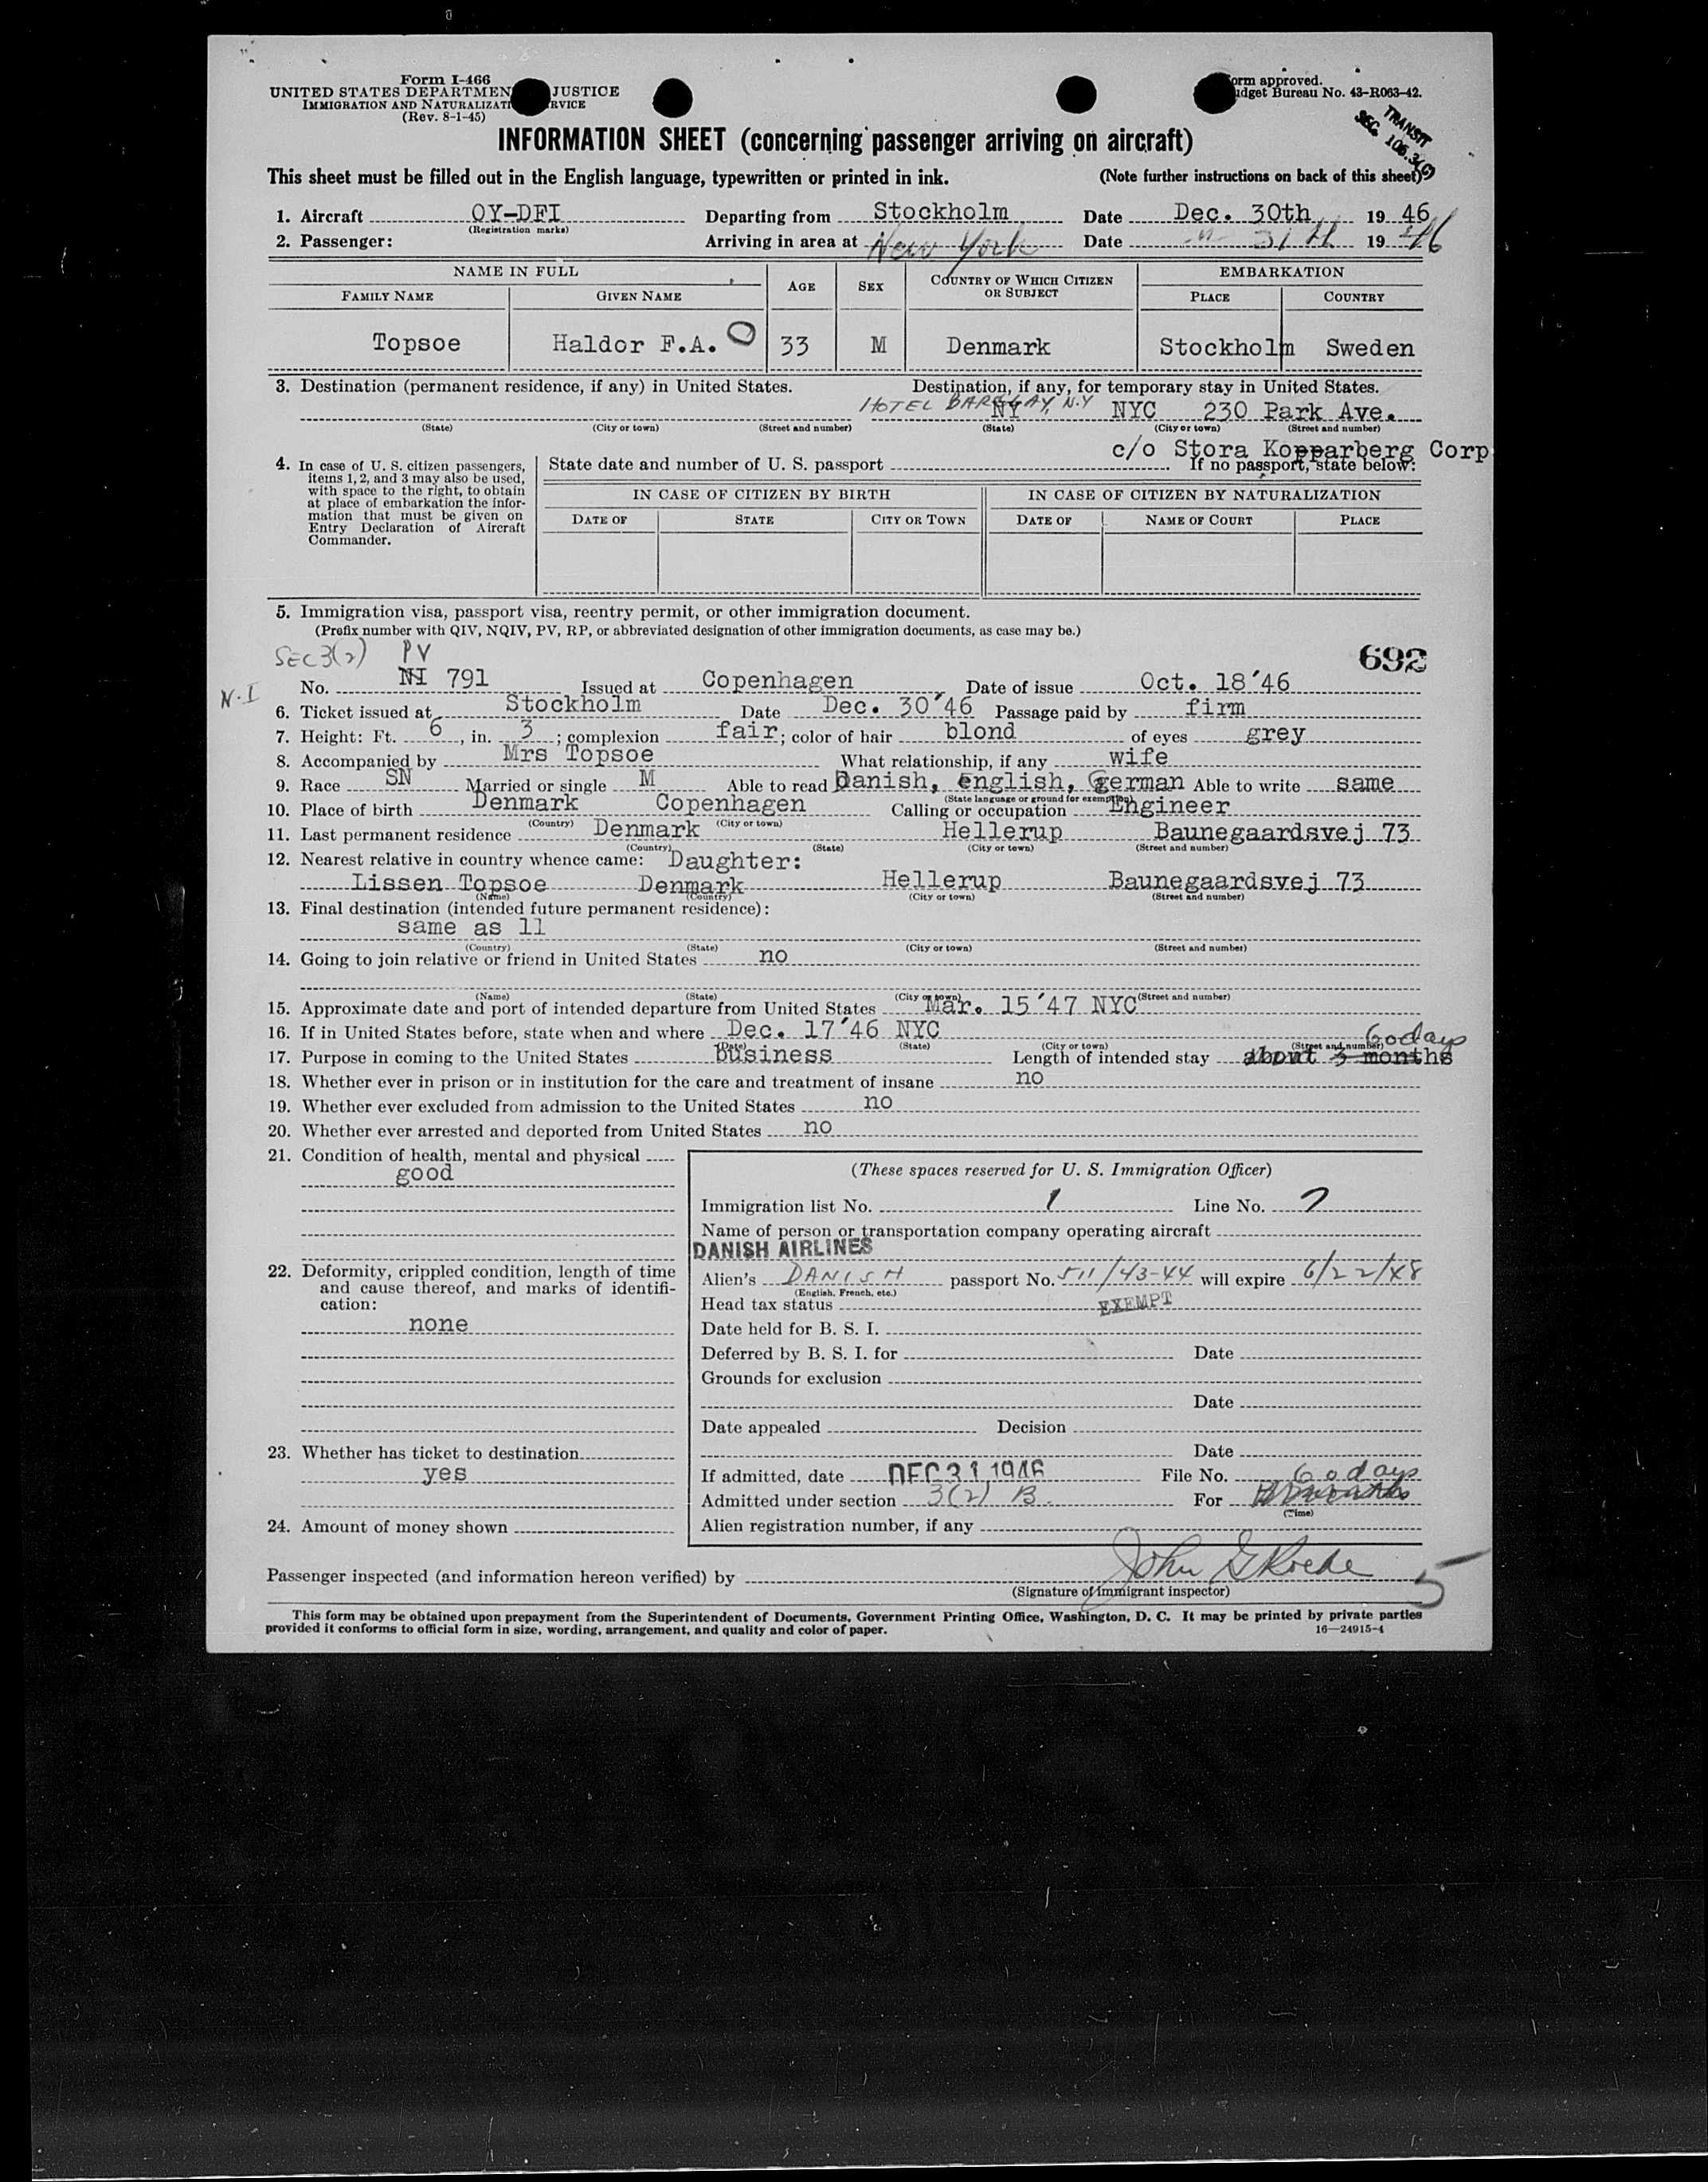 Form I-466
UNITED STATES DEPARTMEN JUSTICE
IMMIGRATION AND NATURALIZATI RVICE
(Rev. 8-1-45)
orm approved.
udget Bureau No. 43-R063-42.
TRANSIT
SEC. 106.3(G)
INFORMATION SHEET (concerning passenger arriving on aircraft)
This sheet must be filled out in the English language, typewritten or printed in ink. (Note further instructions on back of this sheet)
1. Aircraft OY-DFI Departing from Stockholm Date Dec. 30th 19 46
(Registration marks)
2. Passenger: Arriving in area at New York Date 31 19 46
NAME IN FULL AGE SEX COUNTRY OF WHICH CITIZEN OR SUBJECT EMBARKATION
FAMILY NAME GIVEN NAME PLACE COUNTRY
Topsoe Haldor F.A. O 33 M Denmark Stockholm Sweden
3. Destination (permanent residence, if any) in United States. Destination, if any, for temporary stay in United States.
HOTEL BARCLAY, N.Y NY NYC 230 Park Ave.
(State) (City or town) (Street and number) (State) (City or town) (Street and number)
c/o Stora Kopparberg Corp
4. In case of U. S. citizen passengers, items 1, 2, and 3 may also be used, with space to the right, to obtain at place of embarkation the information that must be given on Entry Declaration of Aircraft Commander.
State date and number of U. S. passport If no passport, state below:
IN CASE OF CITIZEN BY BIRTH IN CASE OF CITIZEN BY NATURALIZATION
DATE OF STATE CITY OR TOWN DATE OF NAME OF COURT PLACE
5. Immigration visa, passport visa, reentry permit, or other immigration document.
(Prefix number with QIV, NQIV, PV, RP, or abbreviated designation of other immigration documents, as case may be.)
SEC 3(2) PV 692
N.I No. NI 791 Issued at Copenhagen Date of issue Oct. 18'46
6. Ticket issued at Stockholm Date Dec. 30'46 Passage paid by firm
7. Height: Ft. 6, in. 3; complexion fair; color of hair blond of eyes grey
8. Accompanied by Mrs Topsoe What relationship, if any wife
9. Race SN Married or single M Able to read Danish, English, German Able to write same
(State language or ground for exemption)
10. Place of birth Denmark Copenhagen Calling or occupation Engineer
(Country) (City or town)
11. Last permanent residence Denmark Hellerup Baunegaardsvej 73
(Country) (State) (City or town) (Street and number)
12. Nearest relative in country whence came: Daughter:
Lissen Topsoe Denmark Hellerup Baunegaardsvej 73
(Name) (Country) (City or town) (Street and number)
13. Final destination (intended future permanent residence):
same as 11
(Country) (State) (City or town) (Street and number)
14. Going to join relative or friend in United States no
(Name) (State) (City or town) (Street and number)
15. Approximate date and port of intended departure from United States Mar. 15'47 NYC
16. If in United States before, state when and where Dec. 17'46 NYC
(Date) (State) (City or town) (Street and number) 60 days
17. Purpose in coming to the United States business Length of intended stay about 3 months
18. Whether ever in prison or in institution for the care and treatment of insane no
19. Whether ever excluded from admission to the United States no
20. Whether ever arrested and deported from United States no
21. Condition of health, mental and physical
good
22. Deformity, crippled condition, length of time and cause thereof, and marks of identification:
none
23. Whether has ticket to destination
yes
24. Amount of money shown
(These spaces reserved for U. S. Immigration Officer)
Immigration list No. 1 Line No. 7
Name of person or transportation company operating aircraft
DANISH AIRLINES
Alien's DANISH passport No. 511/43-44 will expire 6/22/48
(English, French, etc.)
Head tax status EXEMPT
Date held for B. S. I.
Deferred by B. S. I. for Date
Grounds for exclusion
Date
Date appealed Decision
Date
If admitted, date DEC 31 1946 File No. 60 days
Admitted under section 3(2) B. For
(Time)
Alien registration number, if any
Passenger inspected (and information hereon verified) by John G Roede 5
(Signature of immigrant inspector)
This form may be obtained upon prepayment from the Superintendent of Documents, Government Printing Office, Washington, D. C. It may be printed by private parties
provided it conforms to official form in size, wording, arrangement, and quality and color of paper. 16—24915-4